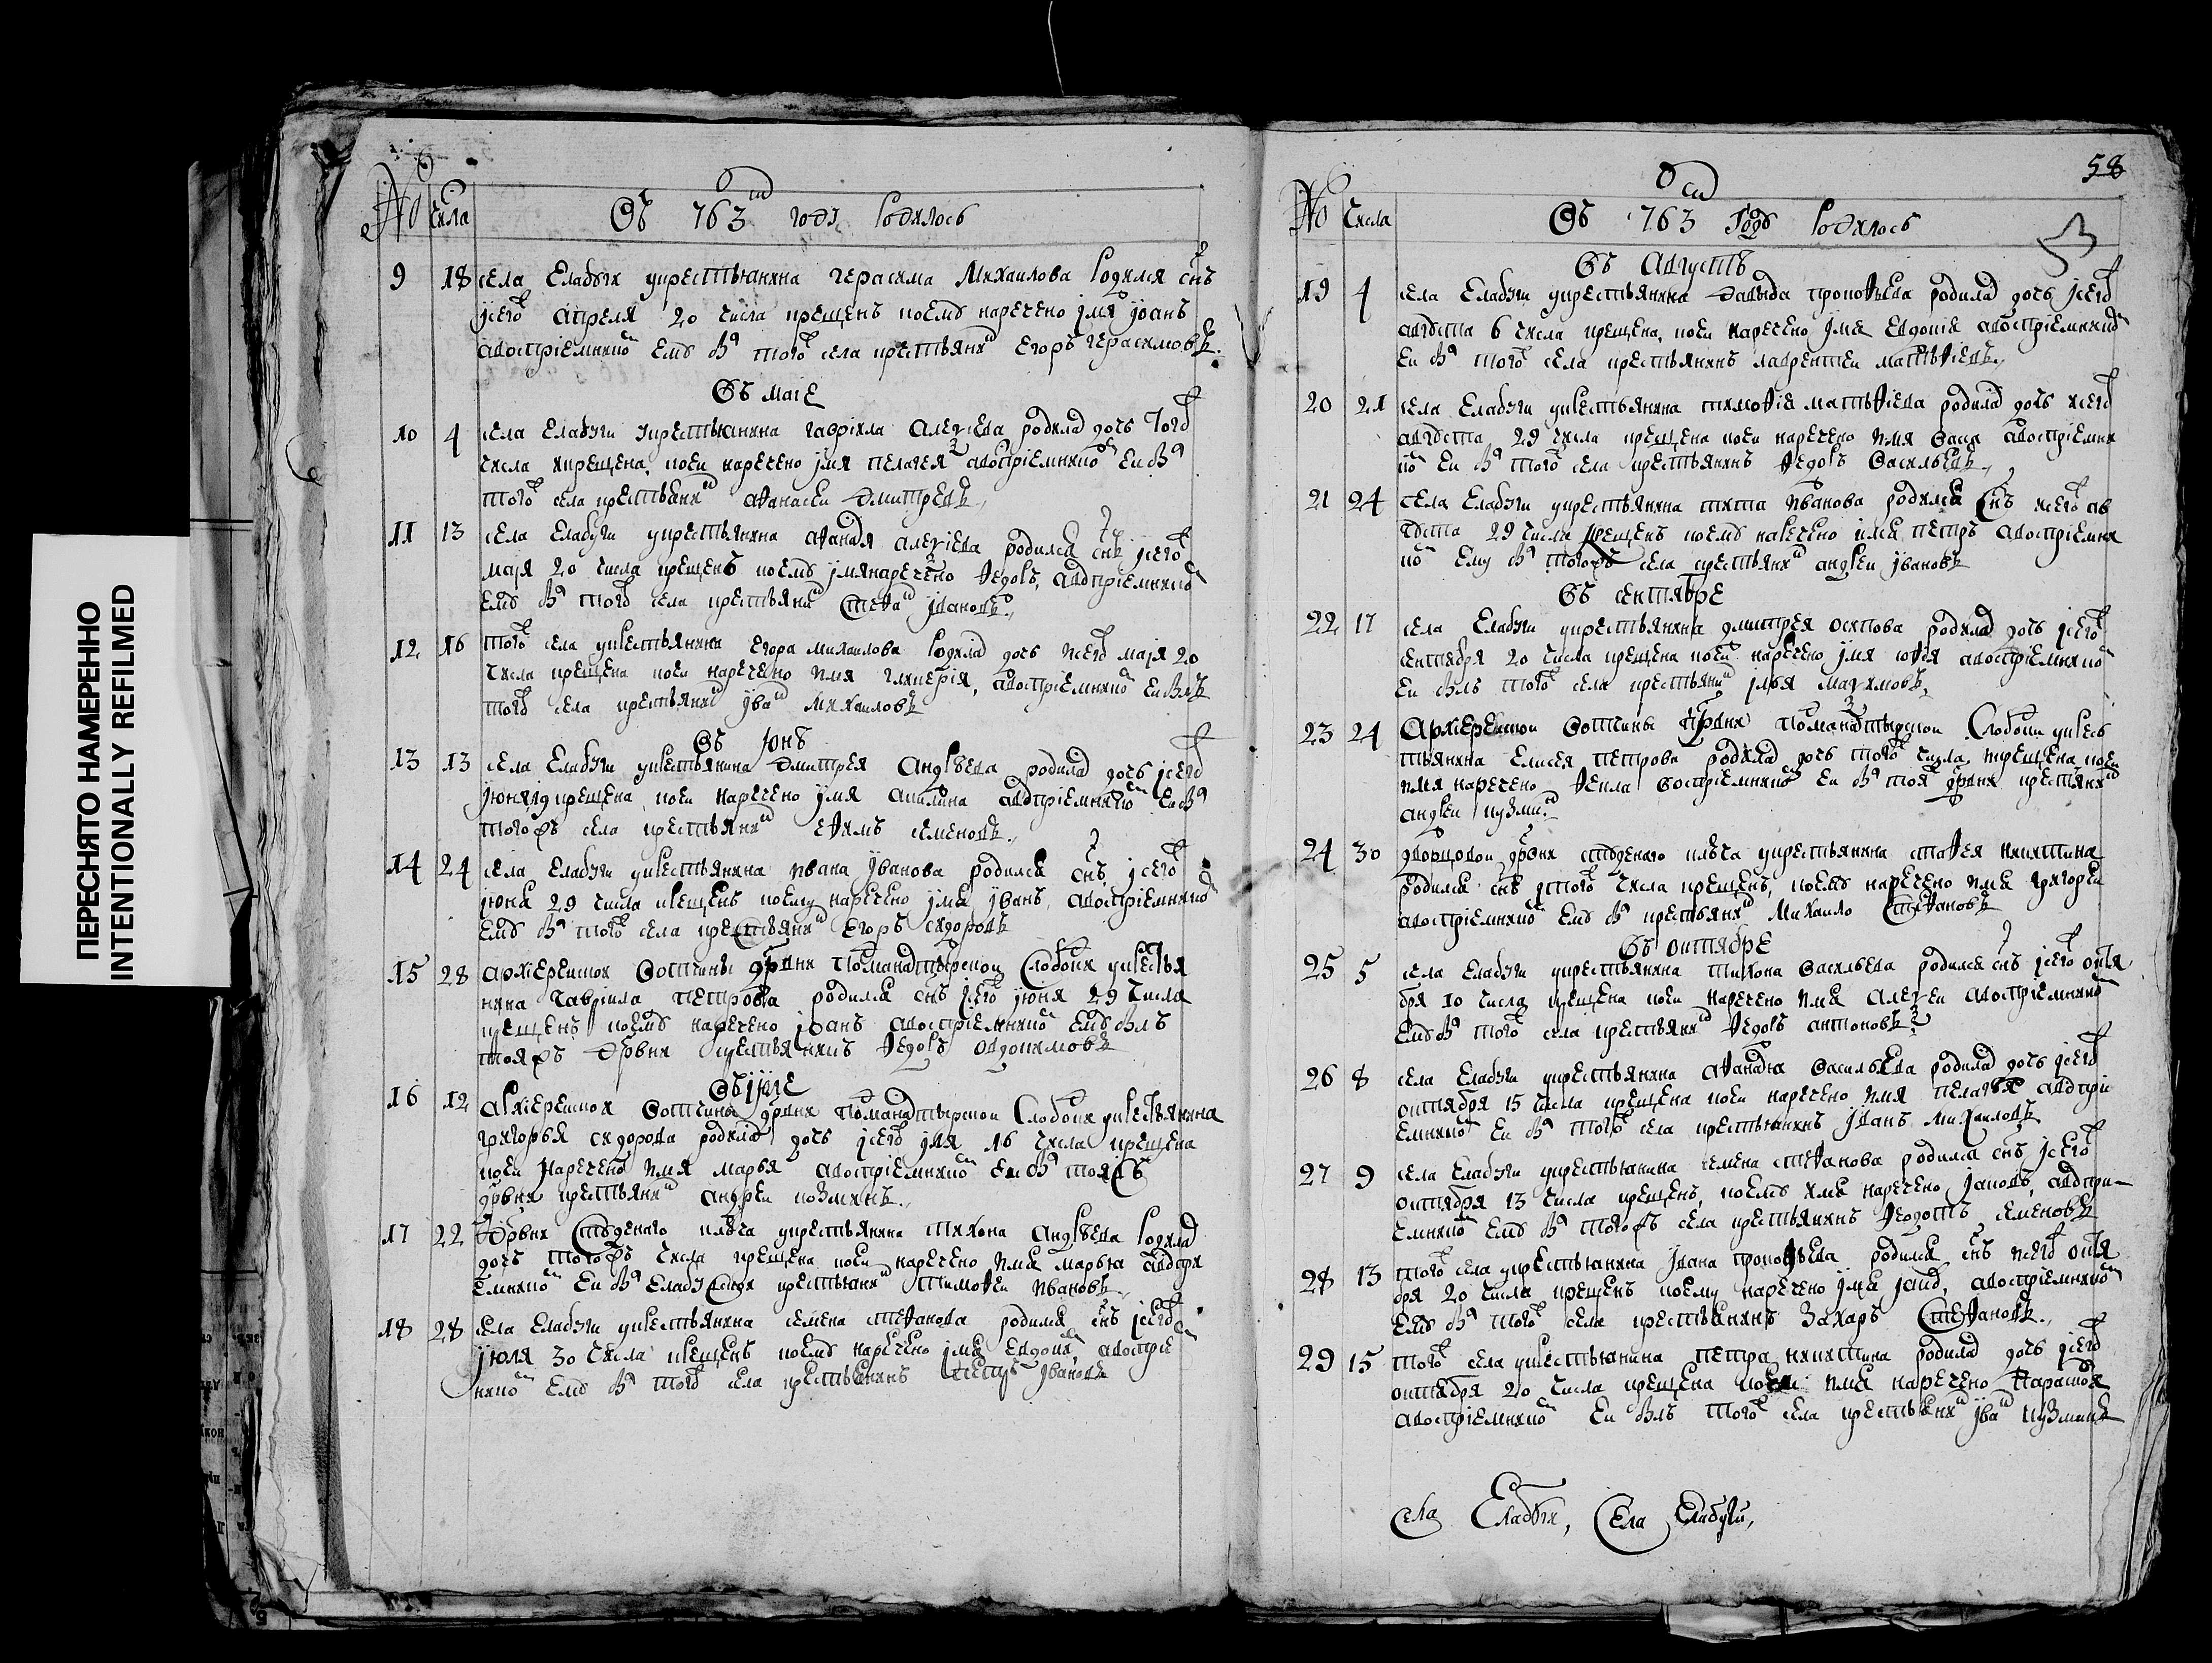 ПЕРЕСНЯТО НАМЕРЕННО
INTENTIONALLY REFILMED
№ числа Въ 763 году родилось
9 18 села Елабуги укрестьянина Герасима Михаилова родился снъ
ꙇсего апреля 20 числа крещенъ ꙇоемꙋ наречено ꙇмя ꙇоанъ
авосприемникомъ емꙋ былъ того села крестьянинъ Егоръ Герасимовъ
Въ маие
10 4 села Елабуги укрестьянина Гавриила Алеѯиева родилась дочь того
числа икрещена, ꙇоеи наречено ꙇмя Пелагея авосприемникомъ еи былъ
того села крестьянинъ Аѳанасеи Дмитреевъ
11 13 села Елабуги укрестьянина Аѳанася Алеѯиева родился снъ ꙇсего
маꙇя 20 числа крещенъ ꙇоемꙋ ꙇмянаречено Ѳедоръ, авосприемникомъ
емꙋ былъ того села крестьянинъ Стеѳанъ ꙇвановъ
12 16 того села укрестьянина Егора Михаилова родилась дочь исего маꙇя 20
числа крещена ꙇоеи наречено имя Гликерия, авосприемникомъ еи былъ
того села крестьянинъ ꙇванъ Михаиловъ
Въ ꙇюнѣ
13 13 села Елабуги укрестьянина Дмитрея Андрѣева родилась дочь ꙇсего
ꙇюня 19 крещена ꙇоеи наречено ꙇмя Акилина авосприемникомъ еи былъ
тогожъ села крестьянинъ Еѳимъ Семеновъ
14 24 села Елабуги укрестьянина Ивана ꙇванова родился снъ ꙇсего
ꙇюня 29 числа крещенъ ꙇоему наречено ꙇмя ꙇванъ, авосприемникомъ
емꙋ былъ того села крестьянинъ Егоръ Сидоровъ
15 28 архиереискои вотчины дрвни слободки укрестья
нина Гавриила Петрова родился снъ ꙇсего ꙇюня 29 числа
крещенъ ꙇоемꙋ наречено ꙇоанъ авосприемникомъ емꙋ былъ
тояжъ дрвни крестьянинъ Ѳедоръ Овдокимовъ
Въ ꙇюле
16 12 архиереискои вотчины дрвни слободки укрестьянина
Григорья Сидорова родилась дочь ꙇсего ꙇюля 16 числа крещена
ꙇоеи наречено имя Марья авосприемникомъ еи былъ тояжъ
дрвни крестьянинъ Андреи Козминъ
17 22 дрвни Стꙋденаго ключа укрестьянина Тихона Андрѣева родилась
дочь тогожъ числа крещена ꙇоеи наречено имя Марья авоспри
емникомъ еи былъ крестьянинъ Тимоѳеи Ивановъ
18 28 села Елабуги укрестьянина Семена Стеѳанова родился снъ ꙇсего
ꙇюля 30 числа крещенъ ꙇоемꙋ наречено ꙇмя авосприем
никомъ емꙋ былъ того села крестьянинъ Петръ ꙇвановъ
58
№ числа Въ 763 годꙋ родилось
Въ августѣ
19 4 села Елабуги укрестьянина Давыда Прокоѳьева родилась дочь ꙇсего
авгꙋста 6 числа крещена, ꙇоеи наречено ꙇмя Евдокия авосприемникомъ
еи былъ того села крестьянинъ Лаврентеи Матѳиевъ
20 21 села Елабуги укрестьянина Тимоѳия Матѳиева родилась дочь исего
авгꙋста 29 числа крещена ꙇоеи наречено имя авосприемни
комъ еи былъ того села крестьянинъ Ѳедоръ Васильевъ
21 24 села Елабуги укрестьянина Тита Иванова родился снъ исего ав
гꙋста 29 числа крещенъ ꙇоемꙋ наречено имя Петръ авосприемни
комъ ему былъ тогожъ села крестьянинъ Андреи ꙇвановъ
Въ сентябре
22 17 села Елабуги укрестьянина Дмитрея Осипова родилась дочь ꙇсего
сентября 20 числа крещена ꙇоеи наречено ꙇмя авосприемникомъ
еи былъ того села крестьянинъ ꙇлья Маѯимовъ
23 24 архиереискои вотчины дрвни слободки укресть
тьянина Елисея Петрова родилась дочь того числа крещена ꙇоеи
имя наречено Ѳекла восприемникомъ еи былъ тоя дрвни крестьянинъ
Андреи Кузминъ
24 30 дворцовои дрвни стꙋденаго ключа укрестьянина Никитина
родился снъ ꙇтого числа крещенъ, ꙇоемꙋ наречено имя Григореи
авосприемникомъ емꙋ былъ крестьянинъ Михаило Стеѳановъ
Въ октябре
25 5 села Елабуги укрестьянина Тихона Васильева родился снъ ꙇсего октя
бря 10 числа крещена ꙇоеи наречено имя Алеѯеи авосприемникомъ
емꙋ былъ того села крестьянинъ Ѳедоръ Антоновъ
26 8 села Елабуги укрестьянина Аѳанасия Васильева родилась дочь ꙇсего
октября 15 числа крещена ꙇоеи наречено имя Пелагея авоспри
емникомъ еи былъ того села крестьянинъ ꙇванъ Михаиловъ
27 9 села Елабуги укрестьянина Семена Стеѳанова родился снъ ꙇсего
октября 13 числа крещенъ, ꙇоемꙋ имя наречено ꙇаковъ, авоспри-
емникомъ емꙋ былъ тогожъ села крестьянинъ Ѳедотъ Семеновъ
28 13 того села укрестьянина ꙇвана Прокоѳьева родился снъ исего октя
бря 20 числа крещенъ ꙇоему наречено ꙇмя ꙇаковъ, авосприемникомъ
емꙋ былъ того села крестьянинъ Захаръ Стеѳановъ
29 15 того села укрестьянина Петра Никитина родилась дочь ꙇсего
октября 20 числа крещена ꙇоеи имя наречено
авосприемникомъ еи былъ того села крестьянинъ ꙇванъ Кузминъ
Села Елабꙋги, Села Елабуги,